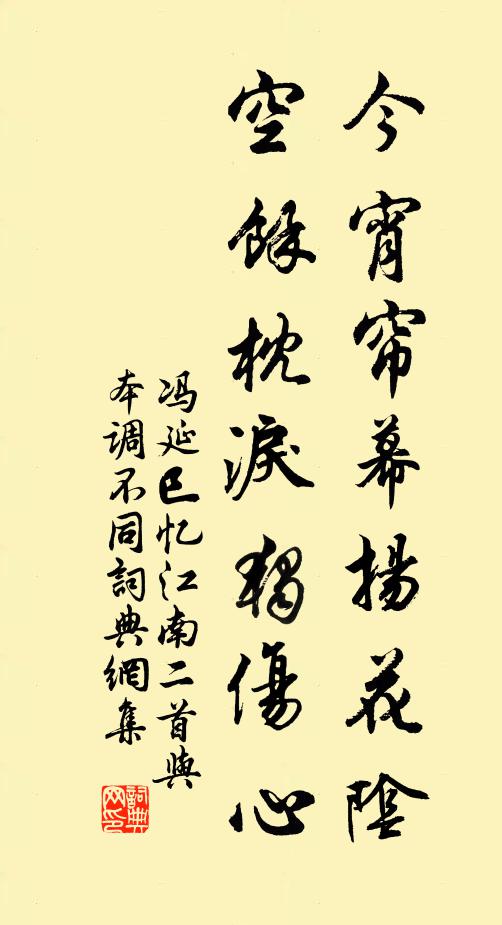 今宵帘幕揚花陰
空餘枕淚獨傷心
冯延巳忆江南二首與
本調不同詞典網集
詞典网印